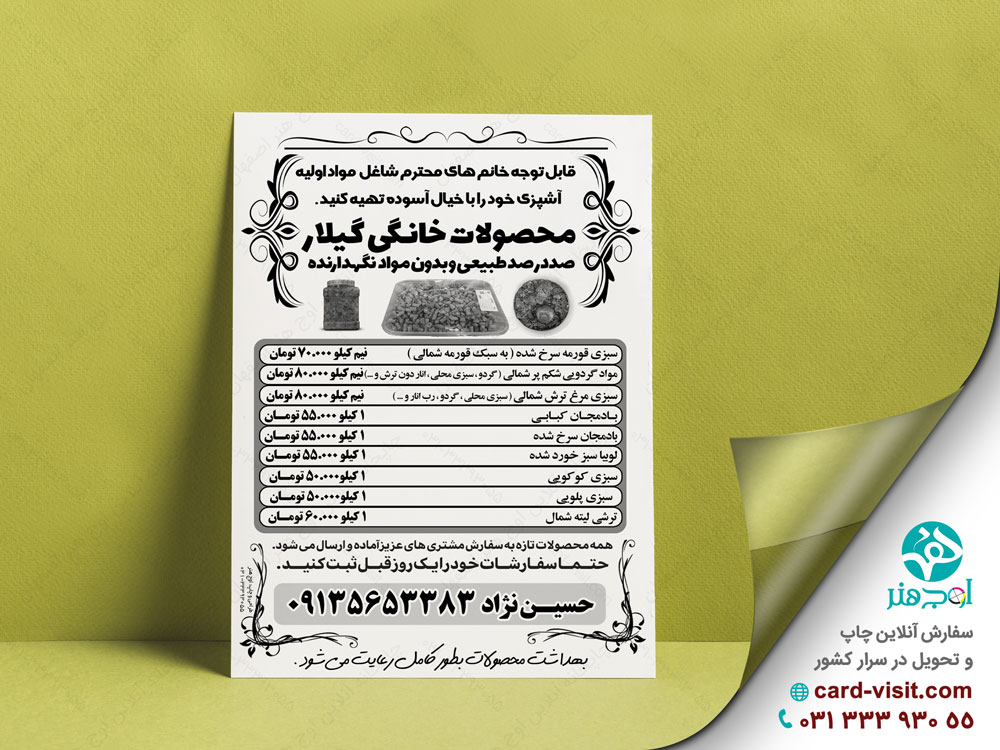 قابل توجه خانم های محترم شاغل مواد اولیه
آشپزی خود را با خیال آسوده تهیه کنید.
محصولات خانگی گیلار
صددرصد طبیعی و بدون مواد نگهدارنده
سبزی قورمه سرخ شده ( به سبک قورمه شمالی ) نیم کیلو ۷۰.۰۰۰ تومان
مواد گردویی شکم پر شمالی ( گردو ، سبزی محلی ، انار دون ترش و ...) نیم کیلو ۸۰.۰۰۰ تومان
سبزی مرغ ترش شمالی ( سبزی محلی ، گردو ، رب انار و ... ) نیم کیلو ۸۰.۰۰۰ تومان
بادمجان کبابی ۱ کیلو ۵۵.۰۰۰ تومان
بادمجان سرخ شده ۱ کیلو ۵۵.۰۰۰ تومان
لوبیا سبز خورد شده ۱ کیلو ۵۵.۰۰۰ تومان
سبزی کوکویی ۱ کیلو ۵۰.۰۰۰ تومان
سبزی پلویی ۱ کیلو ۵۰.۰۰۰ تومان
ترشی لیته شمال ۱ کیلو ۶۰.۰۰۰ تومان
همه محصولات تازه به سفارش مشتری های عزیز آماده و ارسال می شود.
حتما سفارشات خود را یک روز قبل ثبت کنید.
حسین نژاد ۰۹۱۳۵۶۵۳۳۸۳
بهداشت محصولات بطور کامل رعایت می شود.
اوج هنر
سفارش آنلاین چاپ
و تحویل در سرار کشور
card-visit.com
۰۳۱ ۳۳۳ ۹۳۰ ۵۵